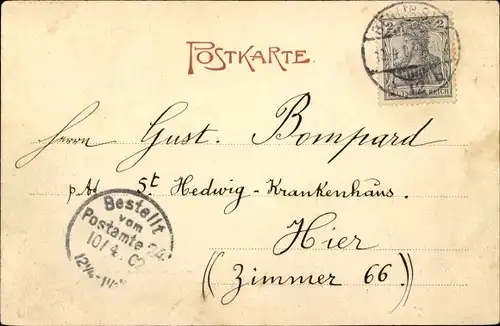 POSTKARTE
2 2
DEUTSCHES REICH
Herrn Gust. Bompard
p. Ad St Hedwig-Krankenhaus.
Hier
(Zimmer 66.)
Bestellt
vom
Postamte 24
10/4. 02